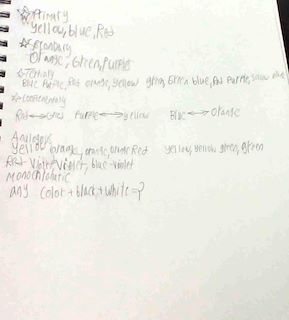 ☆Primary
Yellow, blue, Red
☆Secondary
Orange, Green, Purple
☆Tertiary
Blue Purple, Red orange, yellow green, Green blue, Red Purple,
☆Complementary
Red ↔ Green Purple ↔ yellow Blue ↔ Orange
Analogous
Yellow orange, orange, orange Red yellow, yellow green, green
Red violet, violet, blue-violet
Monochromatic
any color + black + white = ?